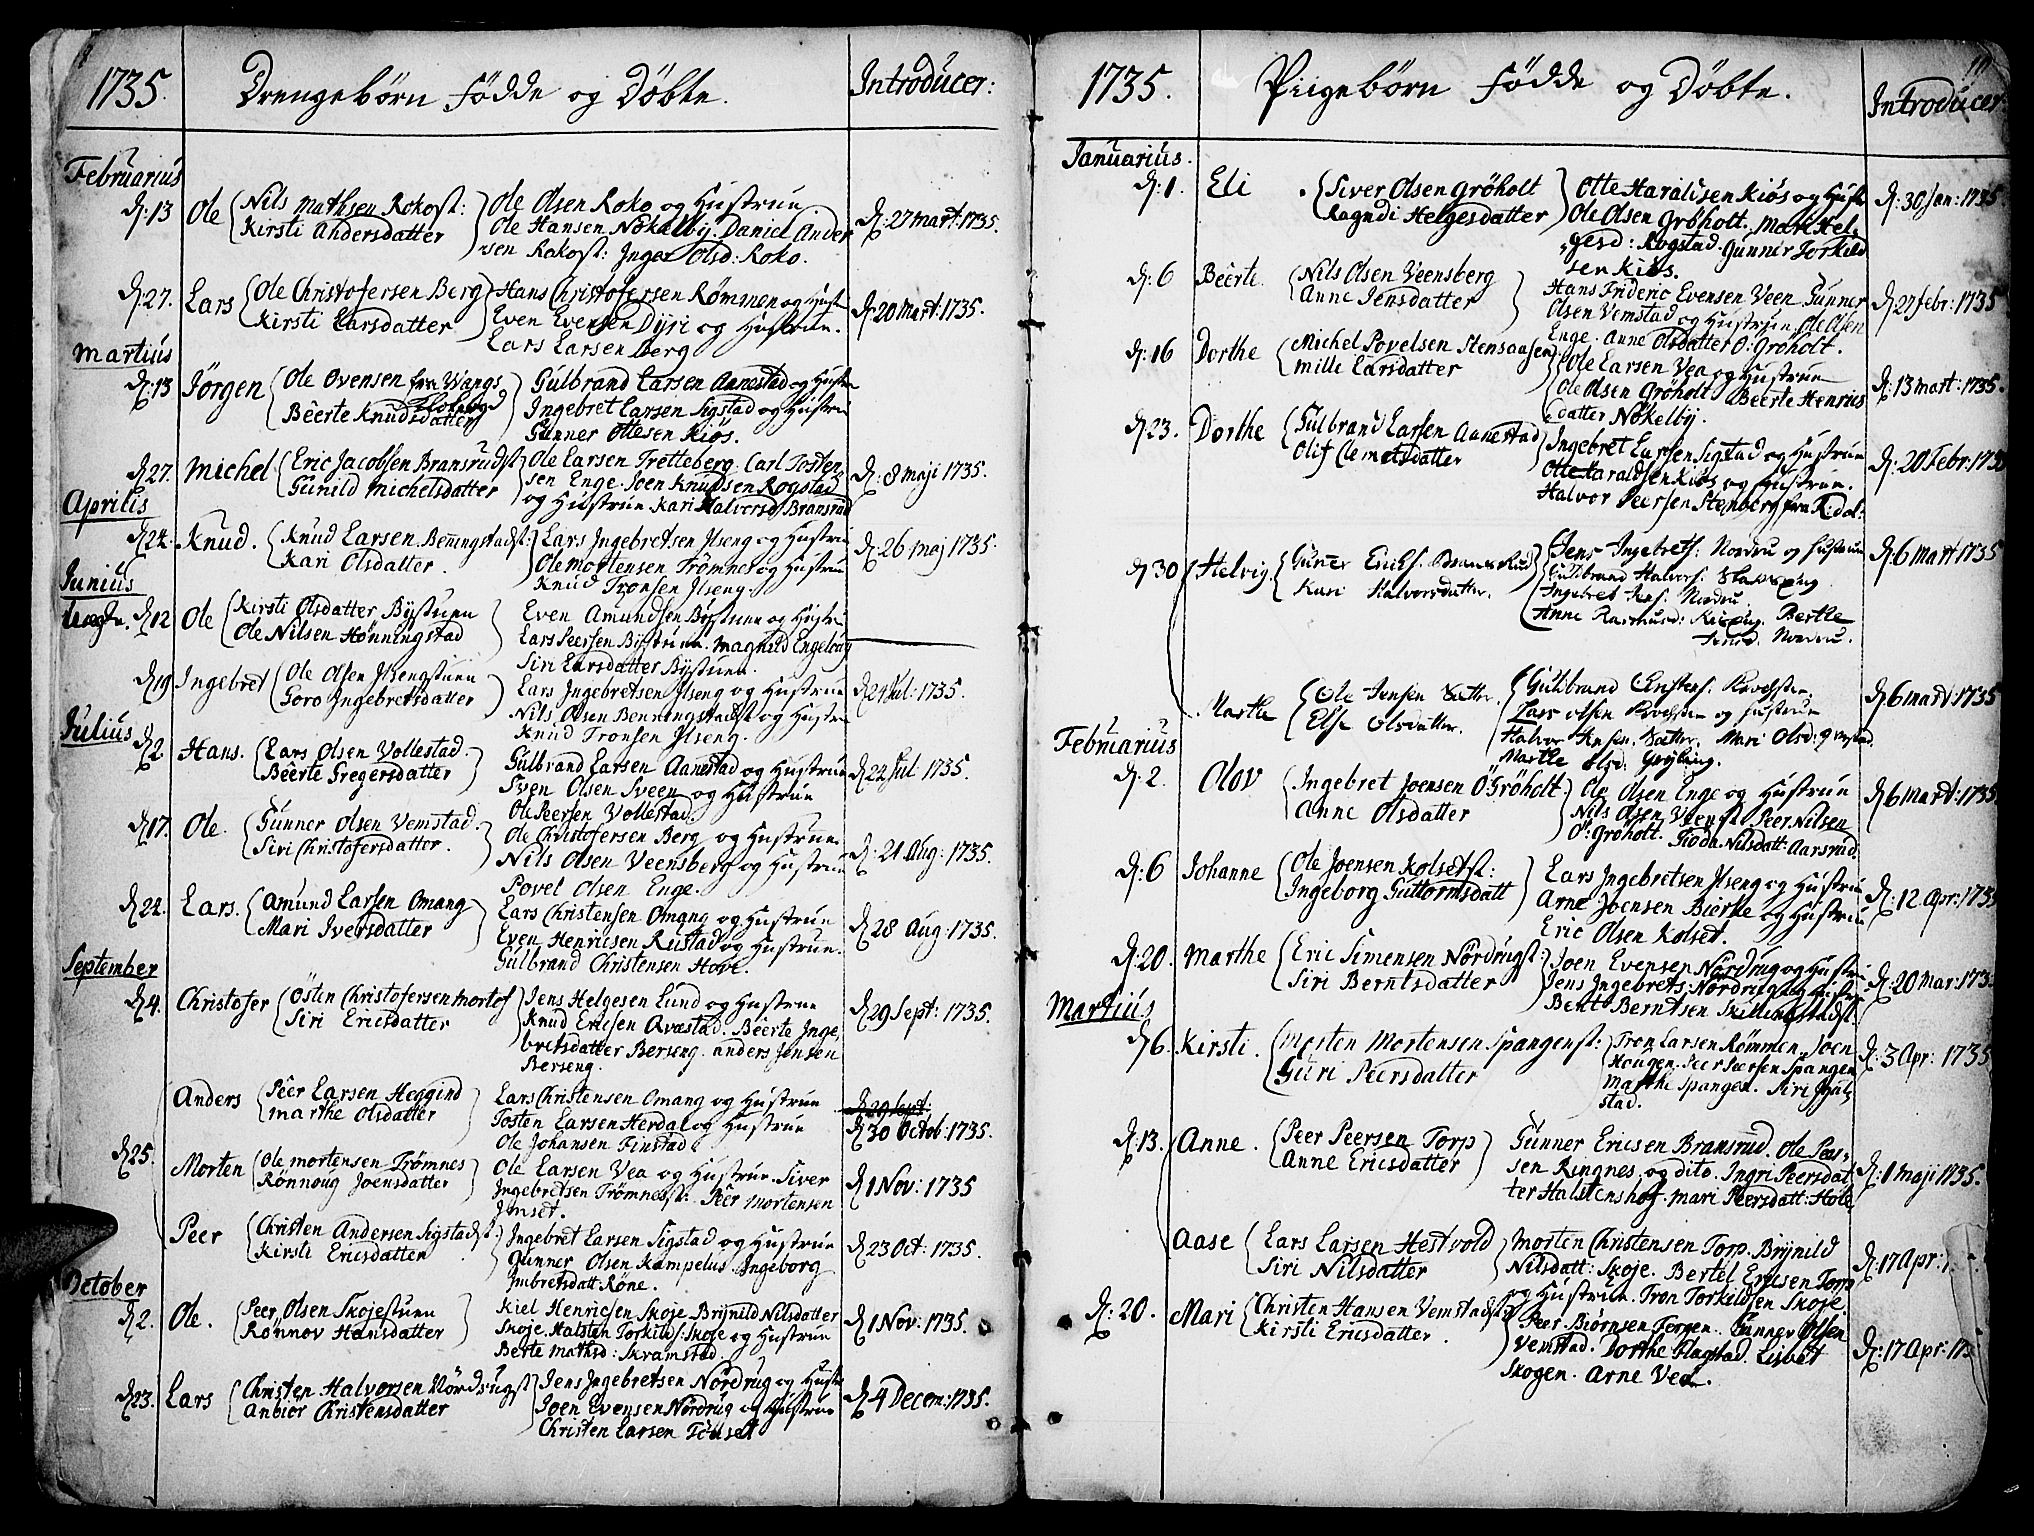 1735. Drengebörn Födde og Döbte. Introducer:
Februarius
d: 13 Ole Nils Mathsen Rokost: Ole Olsen Roko og Hustrun d: 27 Mart: 1735.
Kirsti Andersdatter Ole Hansen Nökelby. Daniel Ander
sen Rokost: Inger Olsd: Roko.
d: 27. Lars Ole Christofersen Berg Hans Christofersen Römmen og Hust d: 20 Mart: 1735.
Kirsti Larsdatter Even Evensen Dyri og Hustrun.
Lars Larsen Berg
Martius
d: 13 Jörgen Ole Ovensen fra Vangs Gulbrand Larsen Aanestad og Hustr
Bëerte Knudsdatter Ingebret Larsen Sigstad og Hustrun
Gunner Ottesen Kiös.
d: 27. Michel Eric Jacobsen Bransrudst Ole Larsen Tretteberg. Carl Tosten d: 8 Maji 1735.
Gunild Michelsdatter sen Enge. Joen Knudsen Rogstad
og Hustrun Kari Halversd Bransrud
Aprilis
d: 24. Knud. Knud Larsen Benningstadst: Lars Ingebretsen Ilseng og Hustrun d: 26 Maj 1735.
Kari Olsdatter. Ole Mortensen Trömnes og Hustrun
Knud Tronsen Ilseng.
Junius
Uægte. d: 12 Ole Kirsti Olsdatter Bystuen Even Amundsen Bystuen og Hustru
Ole Nilsen Hönningstad Lars Peersen Bystuen. Magnild Engeborg
Siri Larsdatter Bystuen.
d: 19 Ingebret Ole Olsen Ilsengstuen Lars Ingebretsen Ilseng og Hustrun d: 24 Jul: 1735.
Goro Ingebretsdatter Nils Olsen Benningstadst og Hustrun
Knud Tronsen Ilseng.
Julius
d: 2 Hans. Lars Olsen Vollestad. Gulbrand Larsen Aanestad og Hustrun d: 24 Jul 1735.
Bëerte Gregersdatter Sven Olsen Sveen og Hustrun
Ole Peersen Vollestad
d: 17. Ole. Gunner Olsen Vemstad. Ole Christofersen Berg og Hustrun. d: 21 Aug: 1735.
Siri Christofersdatter. Nils Olsen Veensberg og Hustrun
Povel Olsen Enge.
d: 24. Lars. Amund Larsen Omang Lars Christensen Omang og Hustrun d: 28 Aug: 1735.
Mari Iversdatter Even Henricsen Rustad og Hustrun.
Gulbrand Christensen Hove.
September
d: 4. Christofer Östen Christofersen Mortof Jens Helgesen Lund og Hustrun d: 29 Sept: 1735.
Siri Ericsdatter Knud Ericsen Qvæstad. Bëerte Inge,
bretsdatter Berseng. Anders Jensen
Berseng.
Anders Pëer Larsen Heggind Lars Christensen Omang og Hustrun d: 29 Sept:
Marthe Olsdatter Tosten Larsen Herdal og Hustrun d: 30 Octob: 1735.
Ole Johansen Finstad.
d: 25. Morten Ole Mortensen Trömnes Ole Larsen Vea og Hustrun. Siver d: 1 Nov: 1735
Rönnoug Joensdatter Ingebretsen Trömnesst: Pëer Mortensen
Imset.
Peer Christen Andersen Sigstadst: Ingebret Larsen Sigstad og Hustrun d: 23 Oct: 1735.
Kirsti Ericsdatter Gunner Olsen Kampelus. Ingeborg
Imbretsdatt Röne.
October
d: 2. Ole. Peer Olsen Skojestuen Kiel Henricsen Skoje. Brynild Nilsdatter d: 1 Nov: 1735.
Rönnov Hansdatter Skoje. Halsten Torkild: Skoje og Hustrun
Berte Mathsd: Skramstad.
d: 23. Lars Christen Halvorsen Nördrugst Jens Ingebretsen Nordrug og Hustr d: 4 Decem: 1735.
Anbiör Christensdatter Joen Evensen Nordrug og Hustrun
Christen Larsen Fönset
1735. Piigebörn Födde og Döbte. Introducer:
Januarius.
d: 1. Eli Siver Olsen Gröholt Otte Haraldsen Kiös og Hustr d: 30 Jan: 1735
Ragndi Helgesdatter Ole Olsen Gröholt. Mari Hel,
gesd: Rogstad. Gunner Torkild
sen Kiös.
d: 6 Bëerte. Nils Olsen Veensberg Hans Frideric Evensen Veen. Gunner d: 27 Febr: 1735
Anne Jensdatter Olsen Vemstad og Hustrun. Ole Olsen
Enge. Anne Olsdatter Ö: Gröholt.
d: 16 Dorthe Michel Povelsen Stensaasen Ole Larsen Vea og Hustrun d: 13 Mart: 1735.
Mille Larsdatter Ole Olsen Gröholt Beerte Henrics
datter Nökelby.
d: 23. Dorthe Gulbrand Larsen Aanestad Ingebret Larsen Sigstad og Hustrun d: 20 Febr: 1735
Olif Clemetsdatter Otte Haraldsen Kiös og Hustrun.
Halvor Peersen Stenberg fra R: dal:
d: 30 Helvig. Gunner Erichs. Bransrud Jens Ingebrets: Nordru og Hustrun d: 6 Mart 1735
Kari Halvorsdatter. Gulbrand Halvors:
Ingebret Jens: Nordru.
Anne Rasmusd: Berthe
Jensd. Nordru.
Marthe Ole Jensen Sætter. Gulbrand Christens: d: 6 Mart: 1735
Else Olsdatter. Lars Olsen og Hustrun
Halvor Jensen. Sætter. Mari Olsd:
Marthe Olsd: Gryting.
Februarius
d: 2. Olov Ingebret Joensen Ö: Gröholt Ole Olsen Enge og Hustrun d: 6 Mart: 1735
Anne Olsdatter Nils Olsen Veenst. Peer Nilsen
Ö: Gröholt. Fioda Nilsdatt: Aarsrud.
d: 6 Johanne Ole Joensen Kolsetst: Lars Ingebretsen Ilseng og Hustrun d: 12 Apr: 1735
Ingeborg Guttormsdatt Arne Joensen Bierke og Hustrun
Eric Olsen Kolset.
d: 20. Marthe Eric Simensen Nördrugst: Joen Evensen Nördrug og Hustru d: 20 Mar: 1735
Siri Berntsdatter Jens Ingebrets: Nördrug og Hustru
Bent Berntsen Skillingstadst.
Martius
d: 6. Kirsti. Morten Mortensen Spangenst: Tron Larsen Römmen. Joen d: 3 Apr: 1735
Guri Peersdatter Hougen. Peer Peersen Spangen
Marthe Spangen. Siri Ljul,
stad.
d: 13. Anne. Peer Peersen Torp Gunner Ericsen Bransrud. Ole Peer, d: 1 Maji 1735.
Anne Ericsdatter sen Ringnes, og dito. Ingri Peersdat
ter Halstenshof. Mari Peersdatt: Hole
Aase Lars Larsen Hestvold Morten Christensen Torp. Brynild d: 17 Apr:
Siri Nilsdatter Nilsdatt: Skoje. Bertel Ericsen Torp
og Hustrun. Tron Torkildsen Skoje.
d: 20. Mari Christen Hansen Vemstadst: Peer Biörnsen Torgen. Gunner Olsen d: 17 Apr: 173
Kirsti Ericsdatter. Vemstad. Dorthe Flagstad. Lisbet
Skogen. Arne Vea.